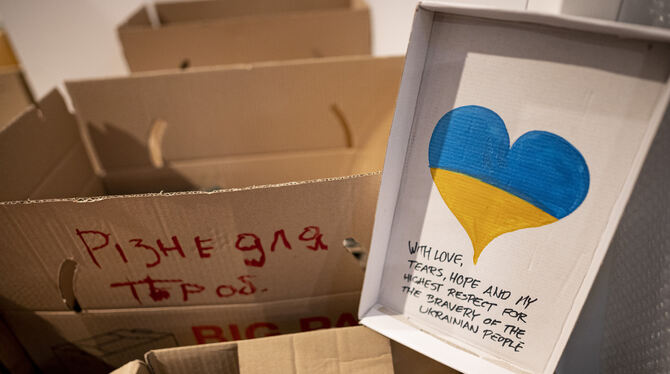 РІЗНЕ ДЛЯ
ТРОБ.
BIG PA
WITH LOVE,
TEARS, HOPE AND MY
HIGHEST RESPECT FOR
THE BRAVERY OF THE
UKRAINIAN PEOPLE